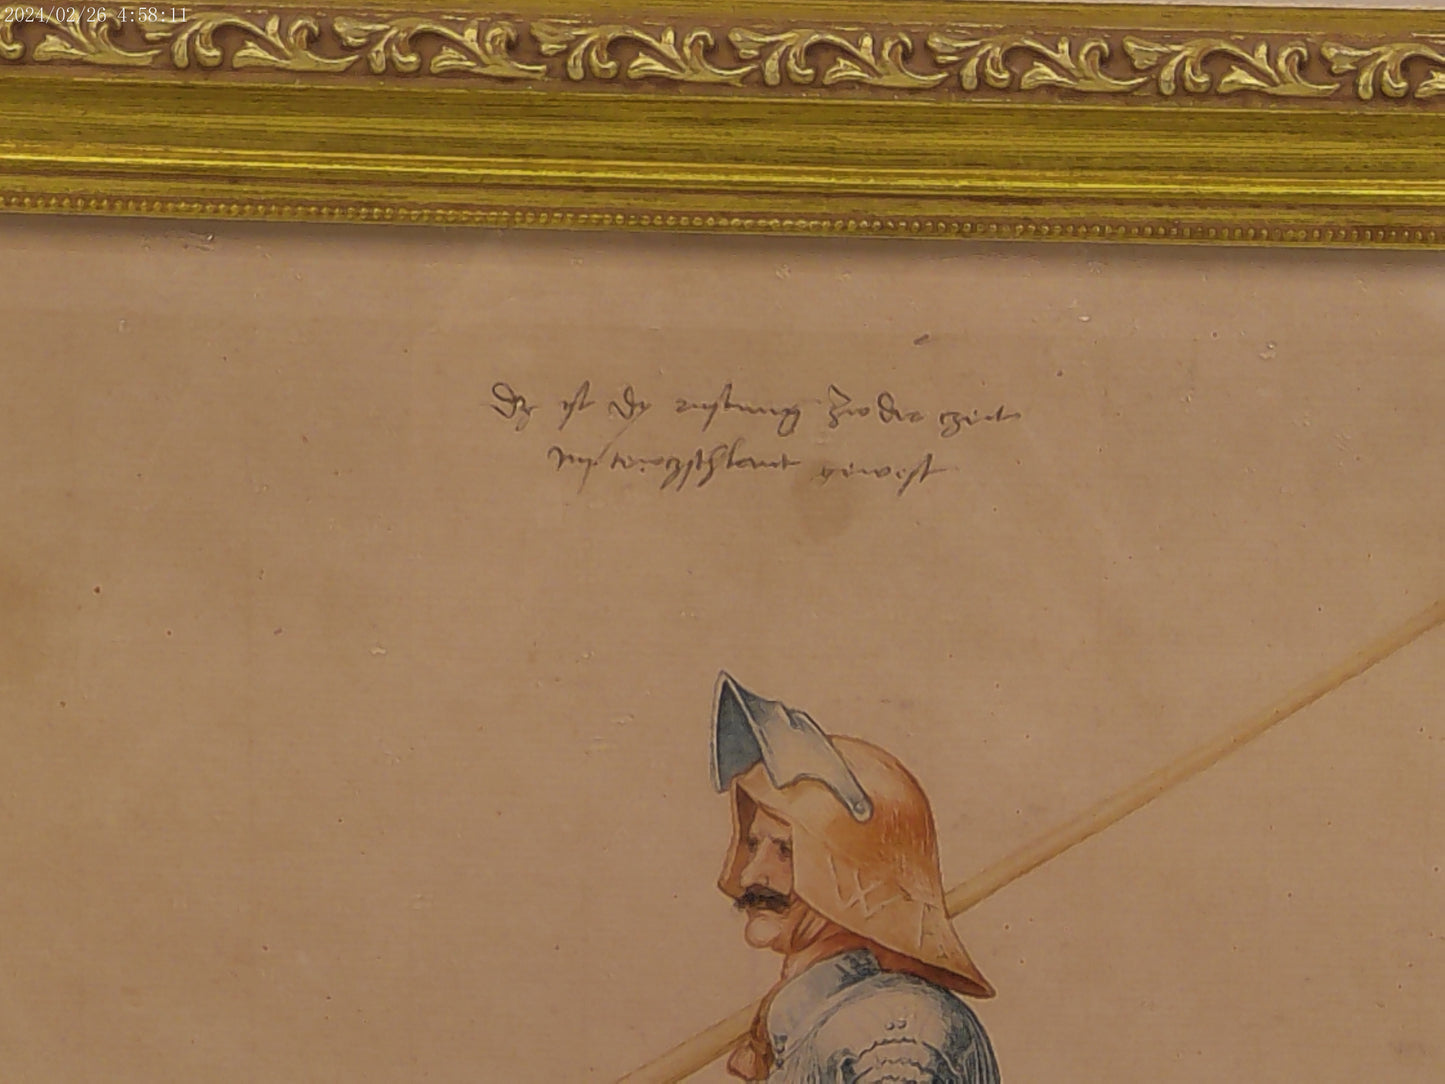 2024/02/26 4:58:11
Dz ist dy rustung zw der czeit
im tewczschlant gewest